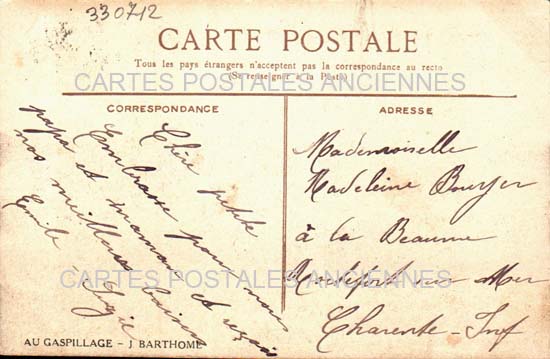 330712
CARTE POSTALE
Tous les pays étrangers n'acceptent pas la correspondance au recto
(Se renseigner à la Poste)
CARTES POSTALES ANCIENNES
CORRESPONDANCE
Chère petite
Embrasse pour nous
papa et maman et reçois
nos meilleurs baisers
Emile
ADRESSE
Mademoiselle
Madeleine Bouyer
à la Beaume
sur Mer
Charente-Inf
CARTES POSTALES ANCIENNES
AU GASPILLAGE - J BARTHOME